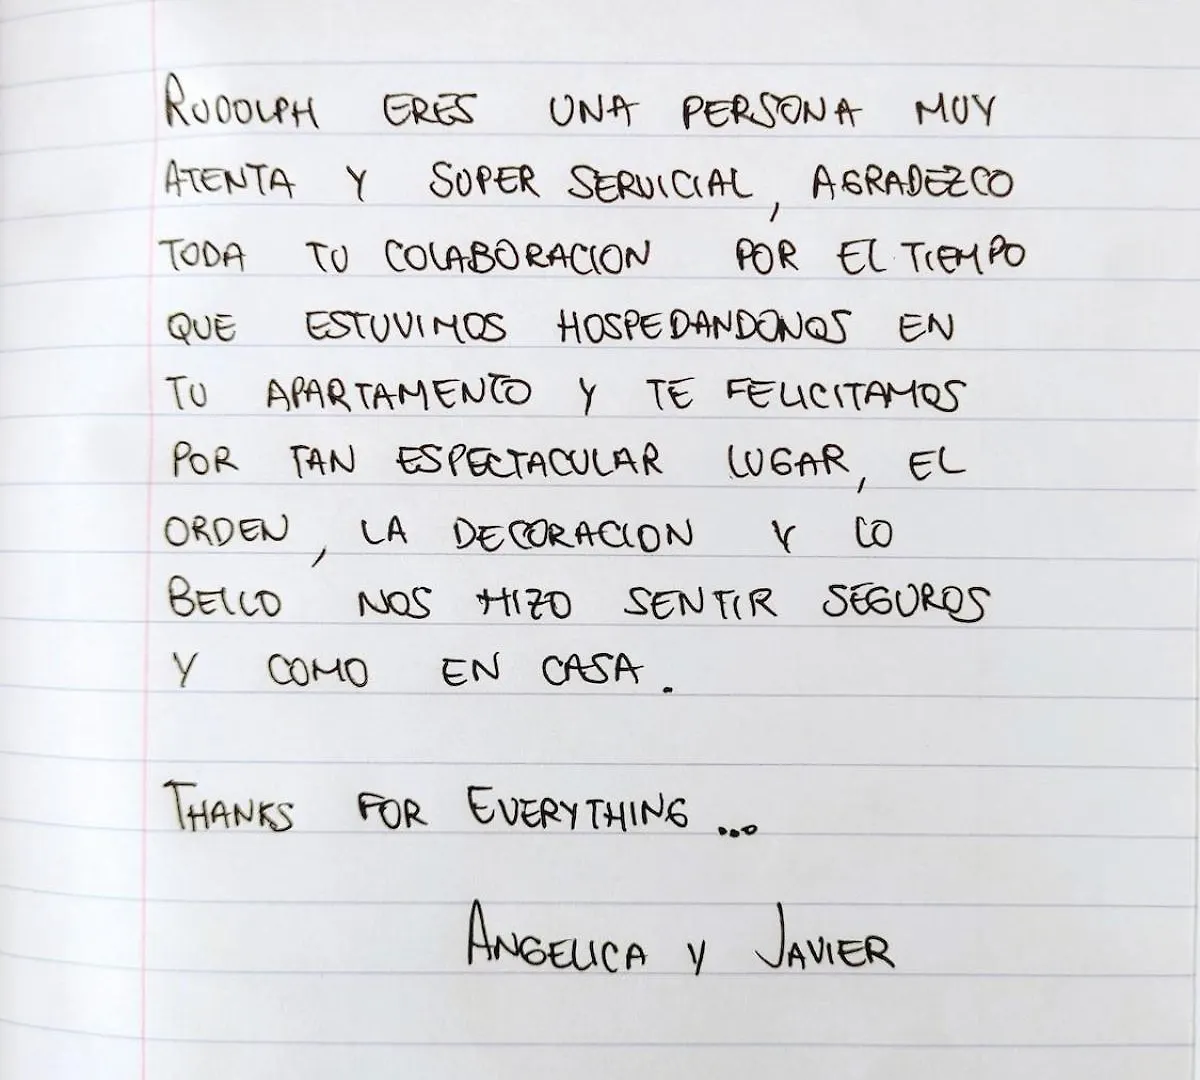 RUDOLPH ERES UNA PERSONA MUY
ATENTA Y SUPER SERVICIAL, AGRADEZCO
TODA TU COLABORACION POR EL TIEMPO
QUE ESTUVIMOS HOSPEDANDONOS EN
TU APARTAMENTO Y TE FELICITAMOS
POR TAN ESPECTACULAR LUGAR, EL
ORDEN, LA DECORACION Y LO
BELLO NOS HIZO SENTIR SEGUROS
Y COMO EN CASA.
THANKS FOR EVERYTHING...
ANGELICA Y JAVIER